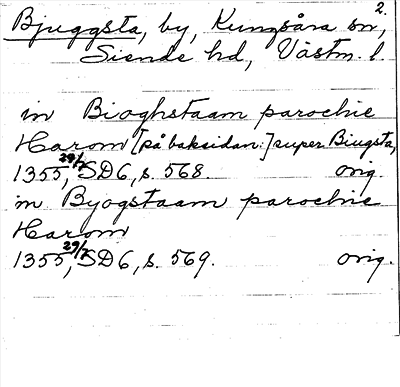 2.
Bjuggsta, by, Kungsåra sn,
Siende hd, Västm. l.
in Bioghstaam parochie
Harom [på baksidan:] super Biugsta,
1355 29/7, SD6, s. 568. orig.
in Byogstaam parochie
Harom
1355 29/7, SD6, s. 569. orig.